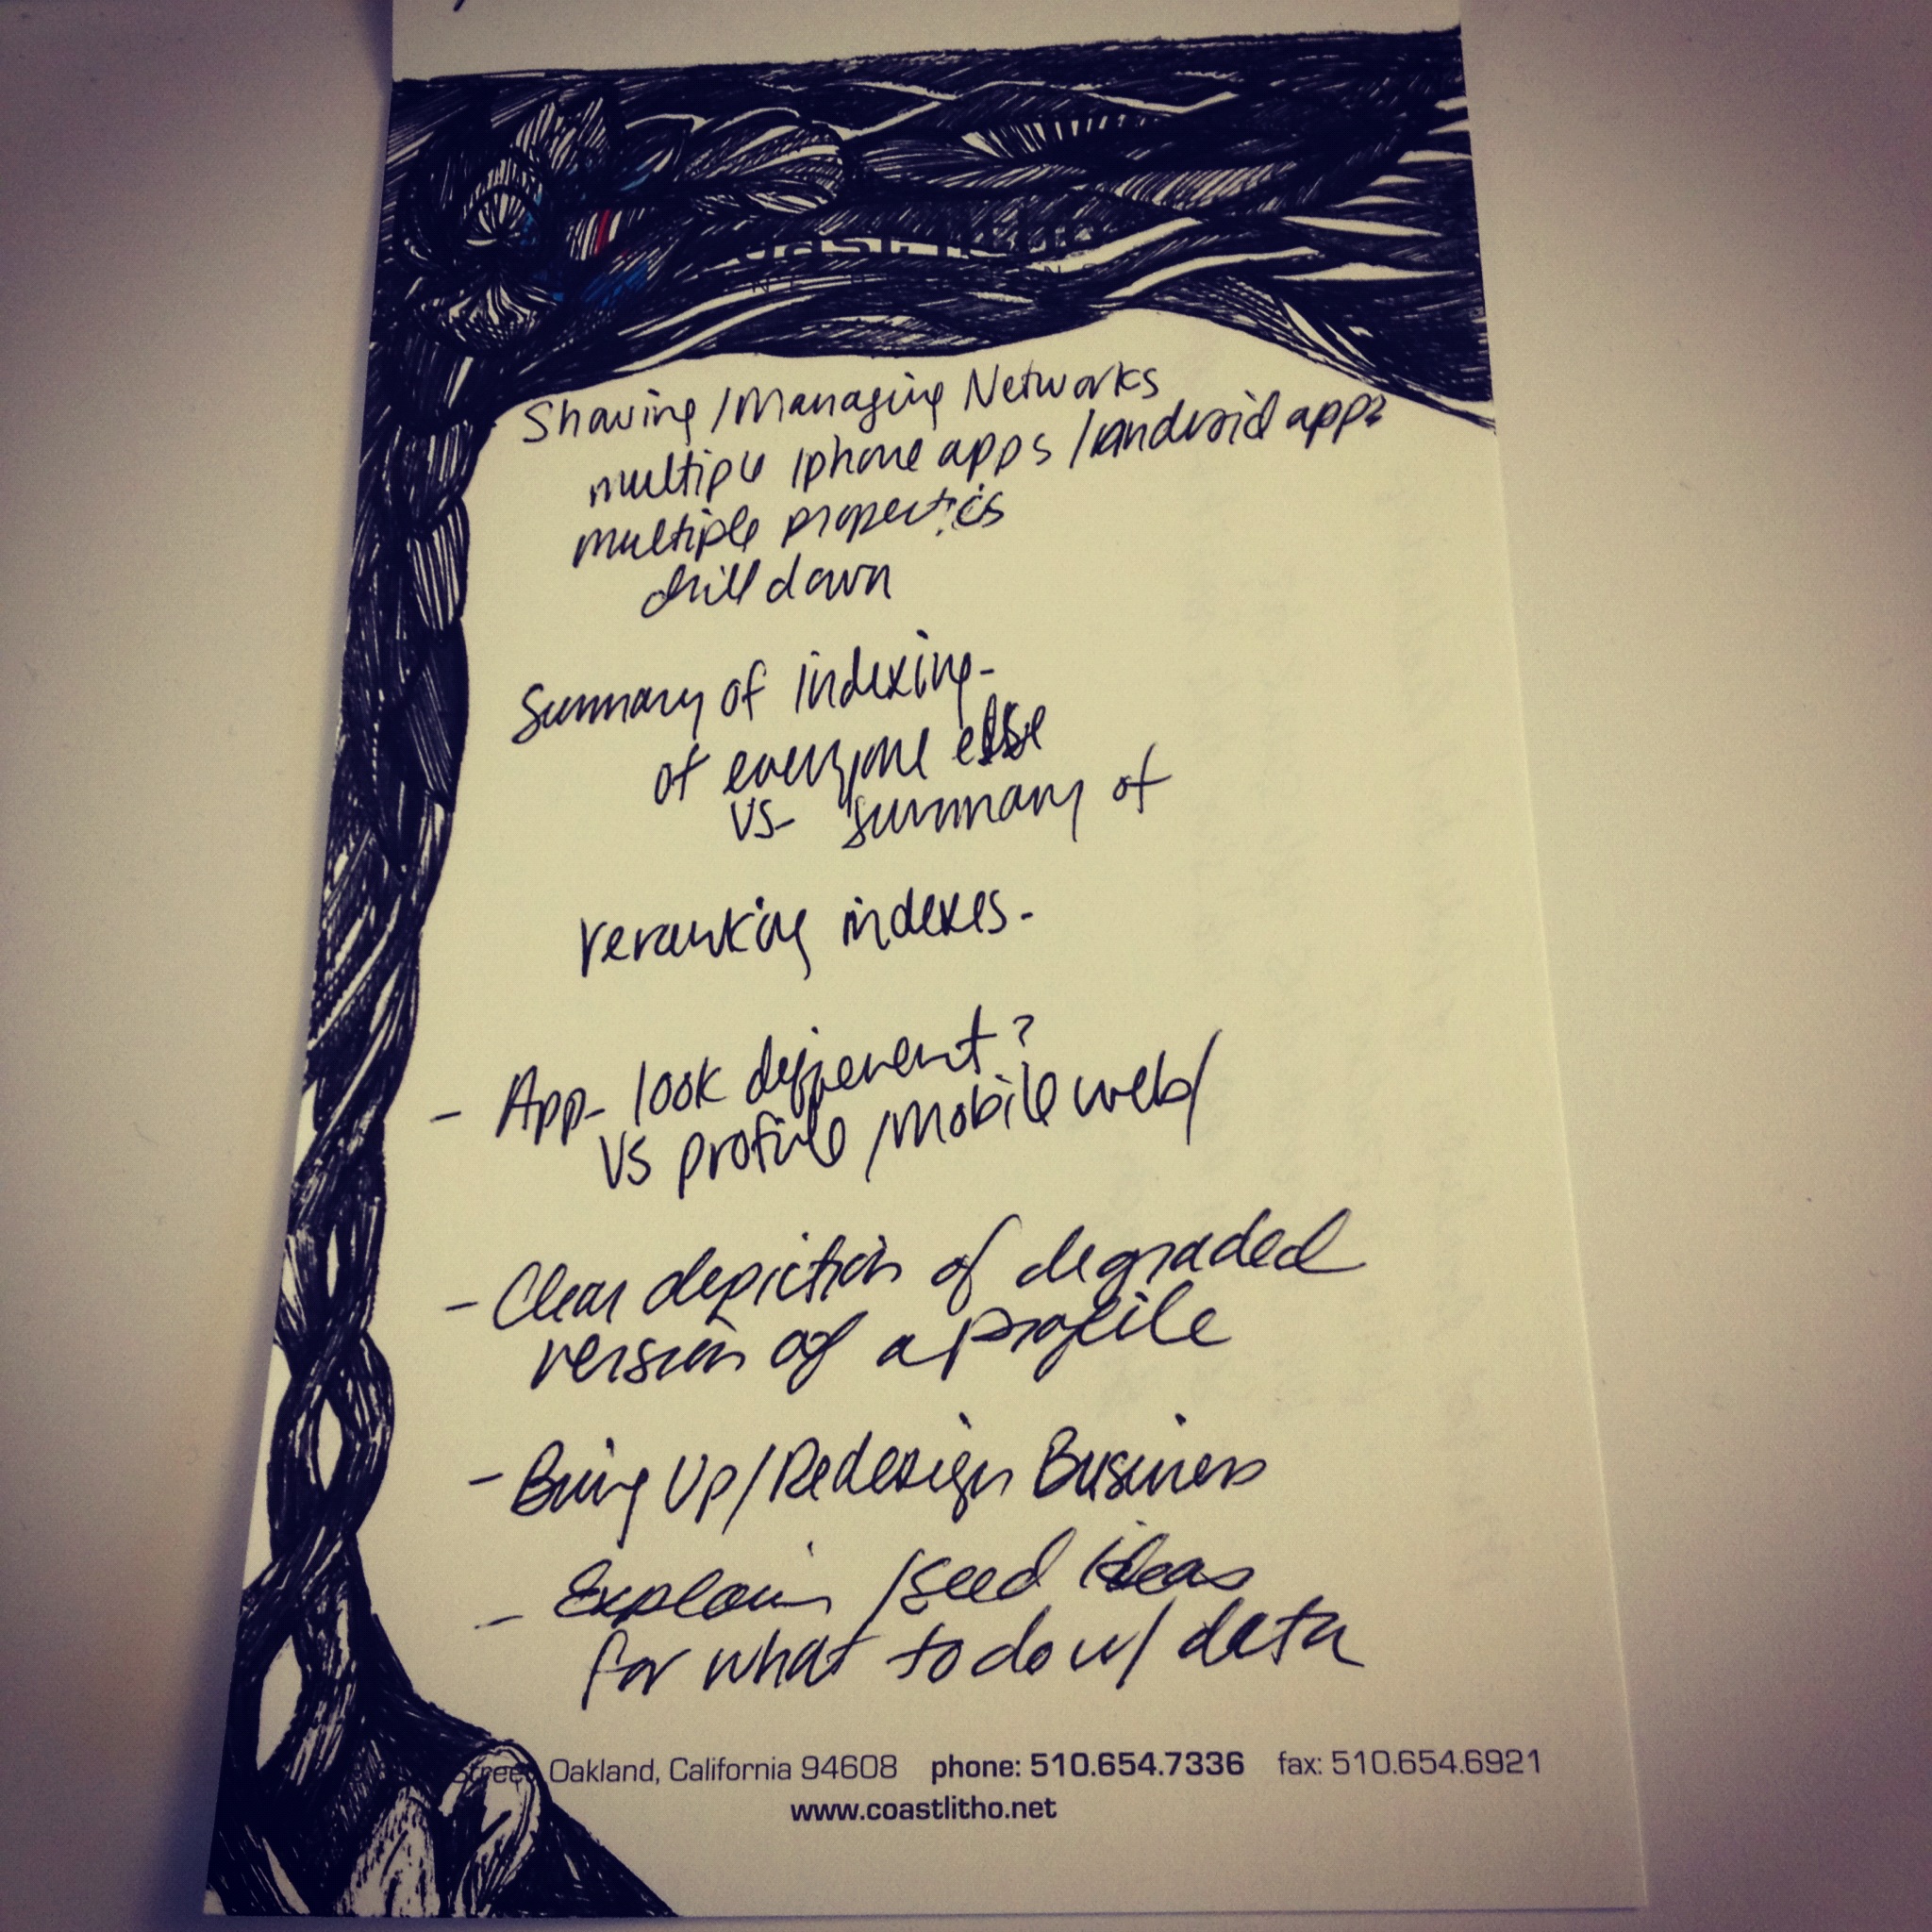 coast litho
Sharing/Managing Networks
multiple iphone apps/android apps
multiple properties
drill down
Summary of indexing-
of everyone else
vs- summary of
reranking indexes-
- App- look different?
vs profile/mobile web/
- Clear depiction of degraded
version of a profile
- Bring Up/Redesign Business
- Explain/seed ideas
for what to do w/ data
Street, Oakland, California 94608 phone: 510.654.7336 fax: 510.654.6921
www.coastlitho.net